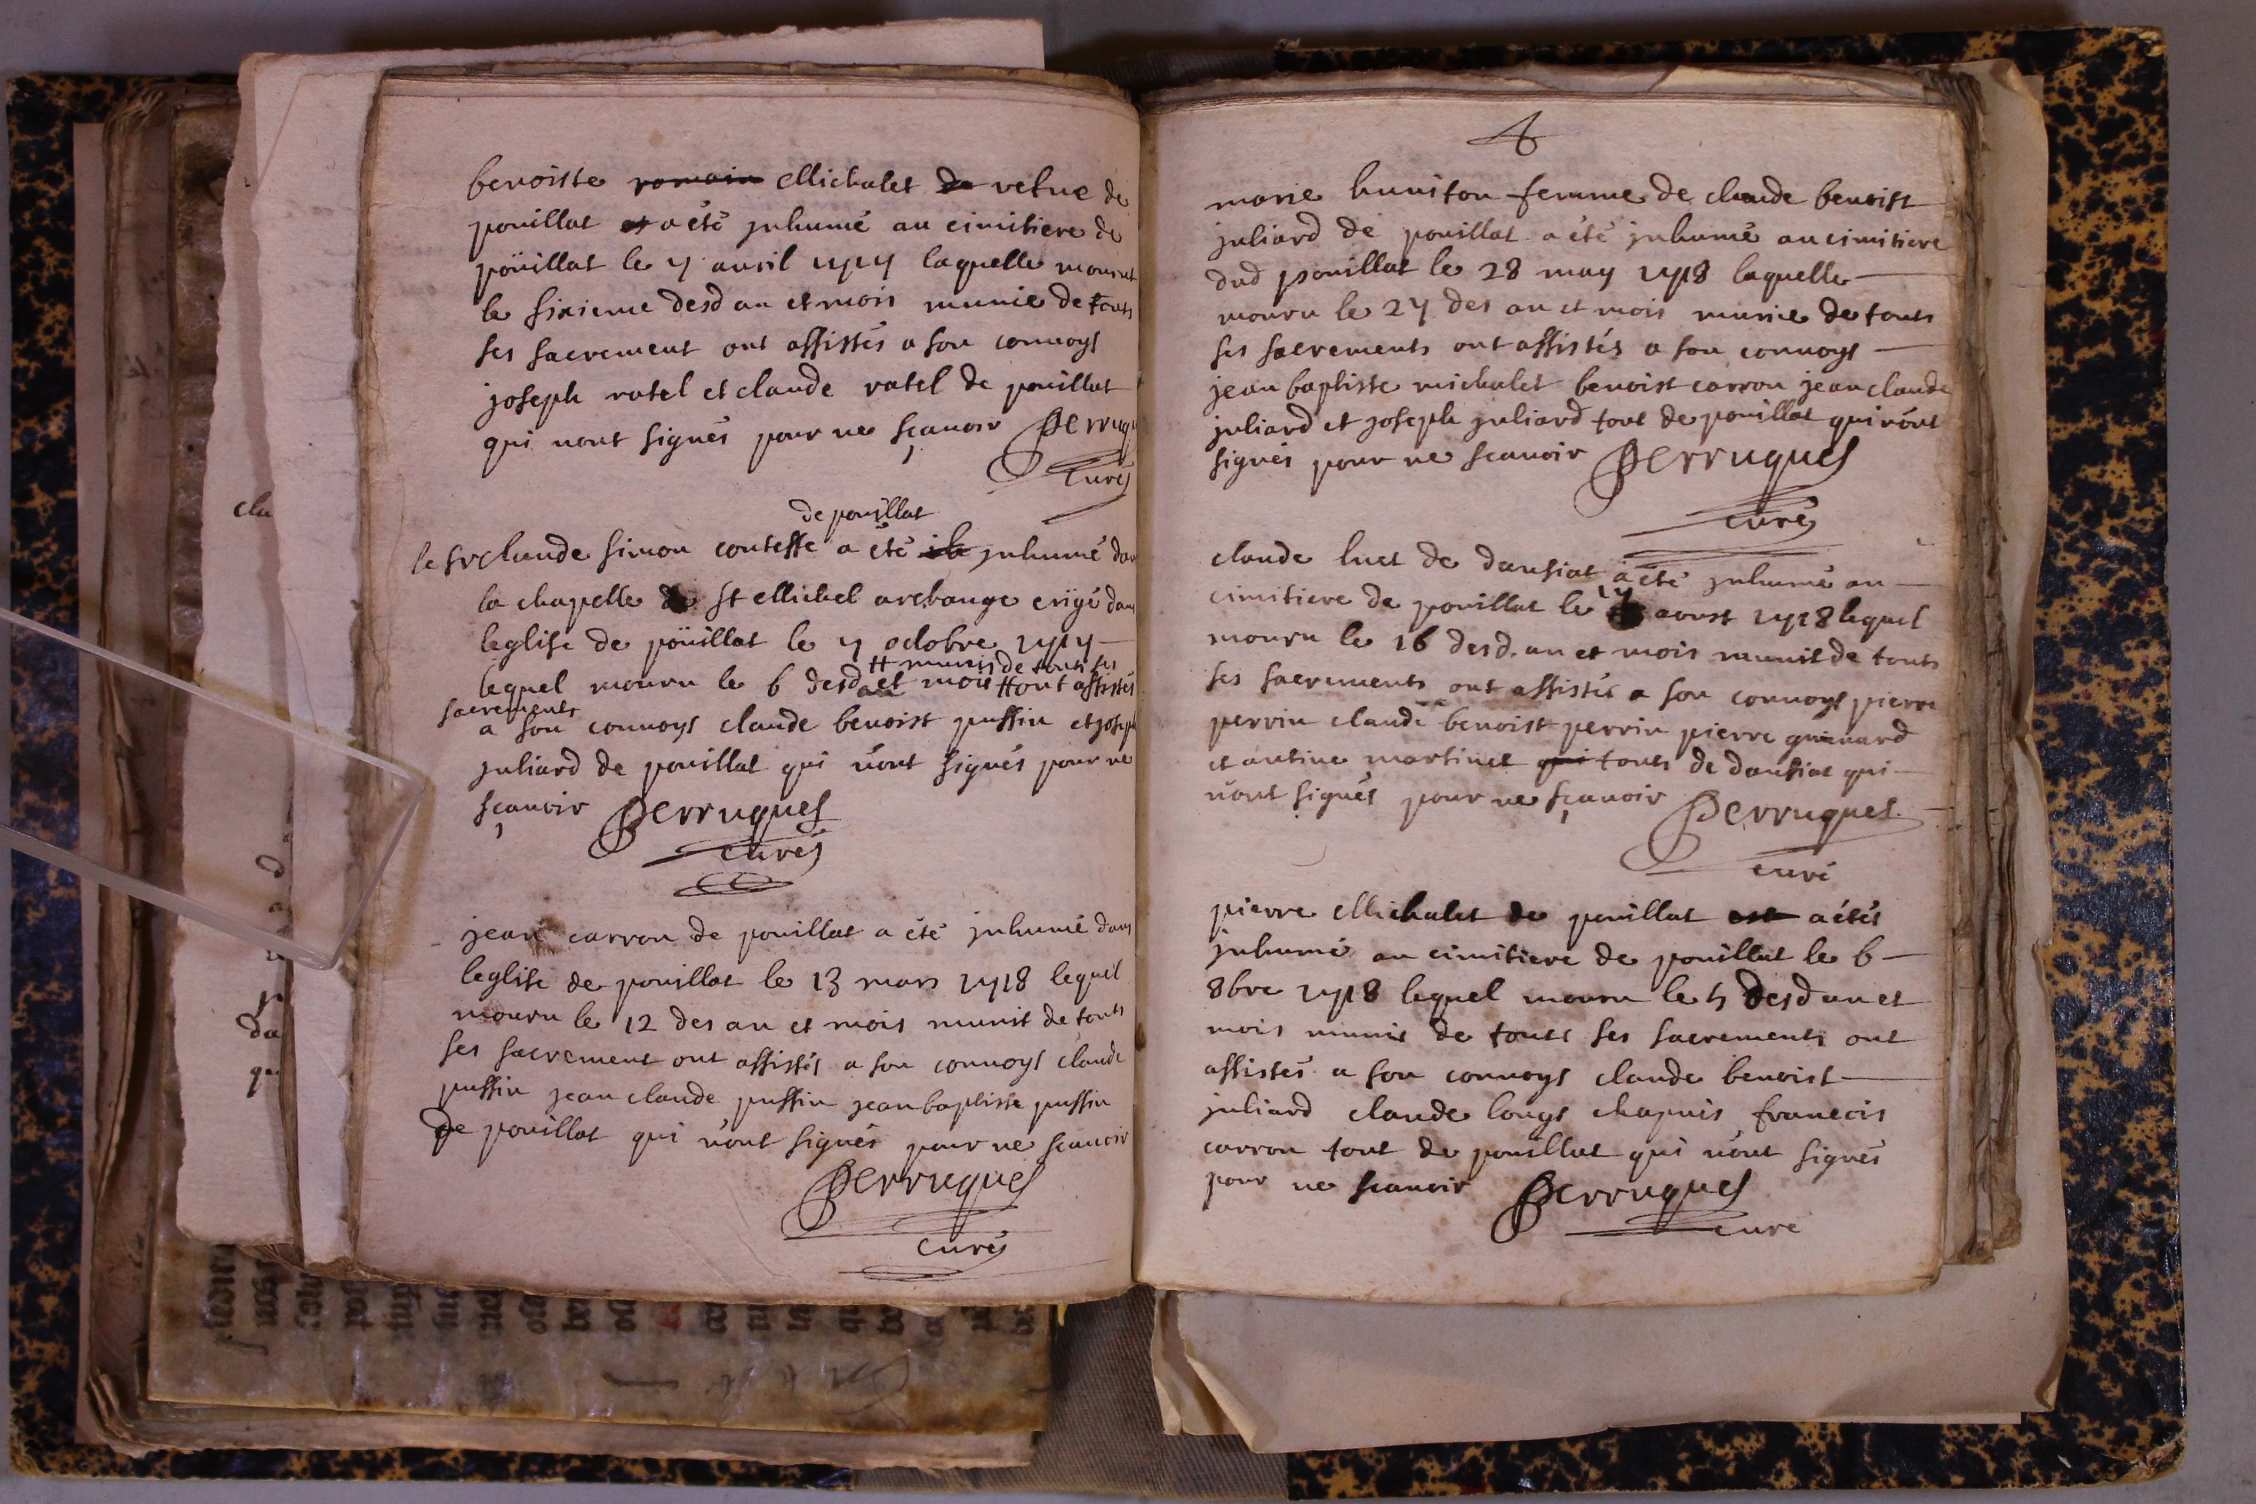 benoiste romain Michalet de vefue de
pouillat et a été juhumé au cimitiere de
poüillat le 7 auril 1717 laquelle mourut
le sixieme desd an et mois munie de touts
ses sacrement ont assistés a son connoys
joseph ratel et claude ratel de pouillat
qui nont signés pour ne sçauoir Perruqu
curés
de pouillat
le sr claude simon contesse a été jnhumé dan
la chapelle de st Michel archange erigé dans
leglise de poüillat le 7 octobre 1717
# munis de touts ses
lequel mouru le 6 desd an et mois # ont assistés
sacrements
a son connoys claude benoist puffin et joseph
juliard de pouillat qui nont signés pour ne
sçauoir Perruques
curés
jean carron de pouillat a été jnhumé dans
leglise de pouillat le 13 mars 1718 lequel
mouru le 12 des an et mois munit de touts
ses sacrement ont assistés a son connoys claude
puffin jean claude puffin jean baptiste puffin
de pouillat qui n'ont signés pour ne scauoir
Perruques
curés
4
marie huniton femme de claude benoist
juliard de pouillat a été jnhumé au cimitiere
dud pouillat le 28 may 1718 laquelle
mouru le 27 des an et mois munie de touts
ses sacrements ont assistés a son connoys
jean baptiste michalet benoist carron jean claude
juliard et joseph juliard tout de pouillat qui n'ont
signés pour ne scauoir Perruques
curés
claude huet de dansiat a été jnhumé au
cimitiere de pouillat le 17 aoust 1718 lequel
mouru le 16 desd. an et mois munit de touts
ses sacrements ont assistés a son connoys pierre
perrin claude benoist perrin pierre guinard
et antine martinet qui touts de dansiat qui
n'ont signés pour ne sçauoir Perruques
curé
pierre Michalet de pouillat est a étés
jnhumé au cimitiere de pouillat le 6
8bre 1718 lequel mouru le 5 desd an et
mois munis de touts ses sacrements ont
assistés a son connoys claude benoist
juliard claude longs chapuis francois
carron tout de pouillat qui n'ont signés
pour ne scauoir Perruques
cure
cla
da